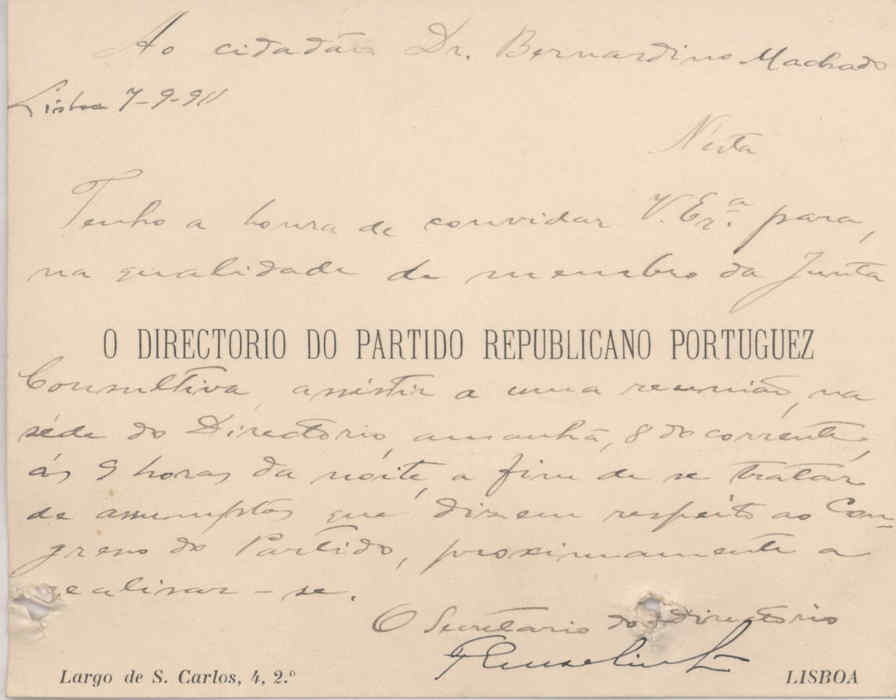 Ao cidadão Dr. Bernardino Machado
Lisboa 7-9-911
Nesta
Tenho a honra de convidar V. Ex.ª para,
na qualidade de membro da Junta
O DIRECTORIO DO PARTIDO REPUBLICANO PORTUGUEZ
Consultiva, assistir a uma reunião, na
séde do Directorio, amanhã, 8 do corrente,
ás 9 horas da noite, a fim de se tratar
de assumptos que dizem respeito ao Con-
gresso do Partido, proximamente a
realisar-se.
O Secretario do Directorio
Largo de S. Carlos, 4, 2.º
LISBOA